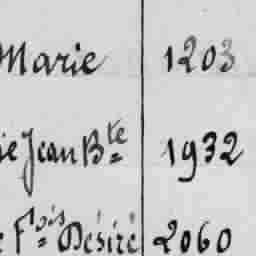 Marie 1203
ie Jean Bte 1932
e Fois Désiré 2060